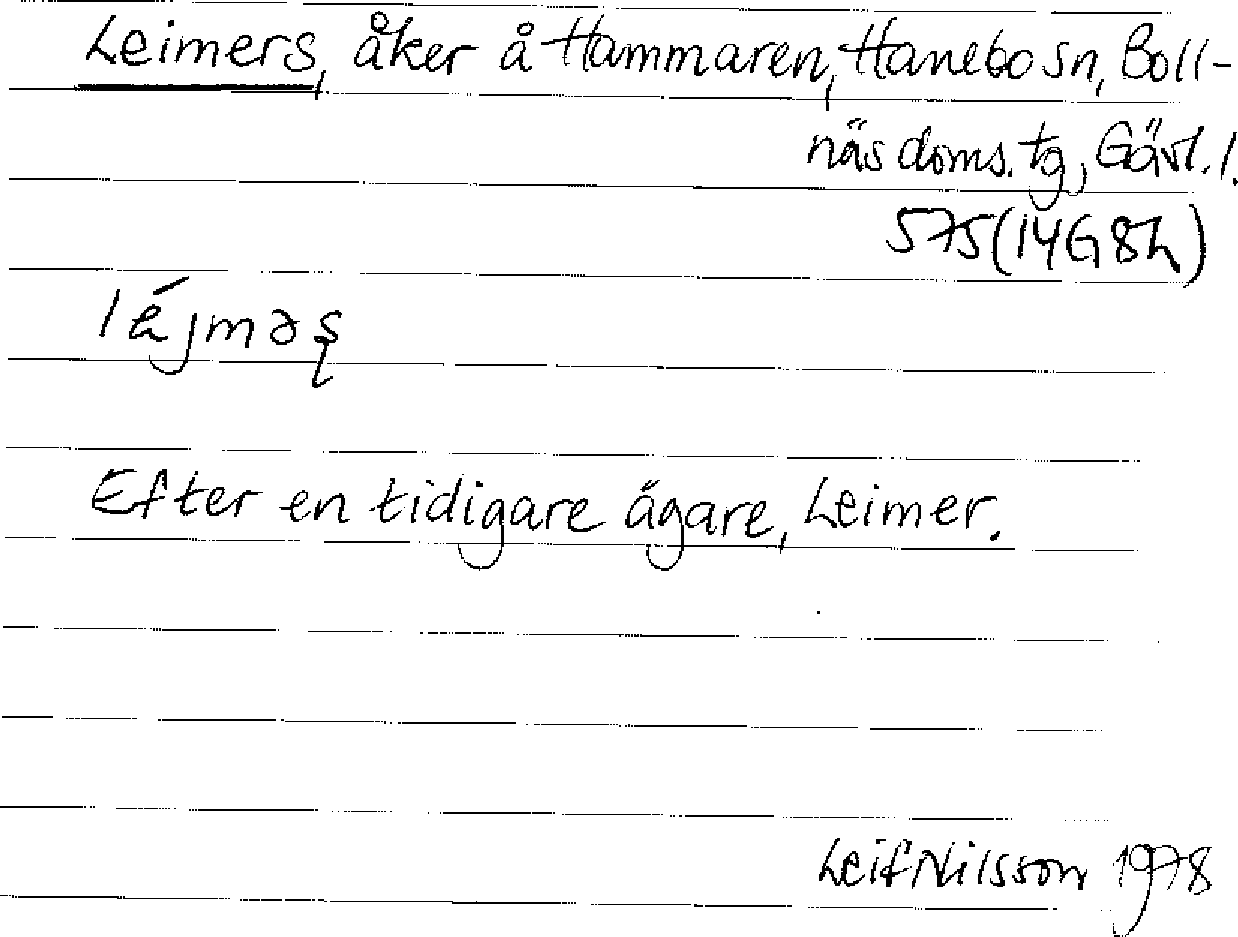 Leimers, åker å Hammaren, Hanebo sn, Boll-
näs doms. tg, Gävl. l.
575 (14G8h)
léjməʂ
Efter en tidigare ägare, Leimer.
Leif Nilsson 1978